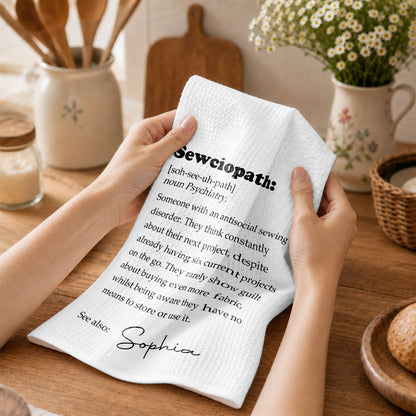 Sewciopath:
[soh-see-uh-path]
noun Psychiatry:
Someone with an antisocial sewing
disorder. They think constantly
about their next project, despite
already having six current projects
on the go. They rarely show guilt
about buying even more fabric,
whilst being aware they have no
means to store or use it.
See also:
Sophia